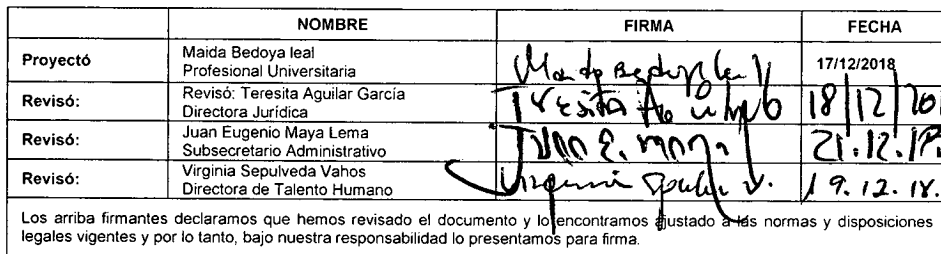 NOMBRE FIRMA FECHA
Proyectó Maida Bedoya leal
Profesional Universitaria Maida Bedoya leal 17/12/2018
Revisó: Revisó: Teresita Aguilar García
Directora Jurídica Teresita 18/12/201
Revisó: Juan Eugenio Maya Lema
Subsecretario Administrativo Juan E. maya 21.12.18.
Revisó: Virginia Sepulveda Vahos
Directora de Talento Humano Virginia v. 19.12.18.
Los arriba firmantes declaramos que hemos revisado el documento y lo encontramos ajustado a las normas y disposiciones
legales vigentes y por lo tanto, bajo nuestra responsabilidad lo presentamos para firma.